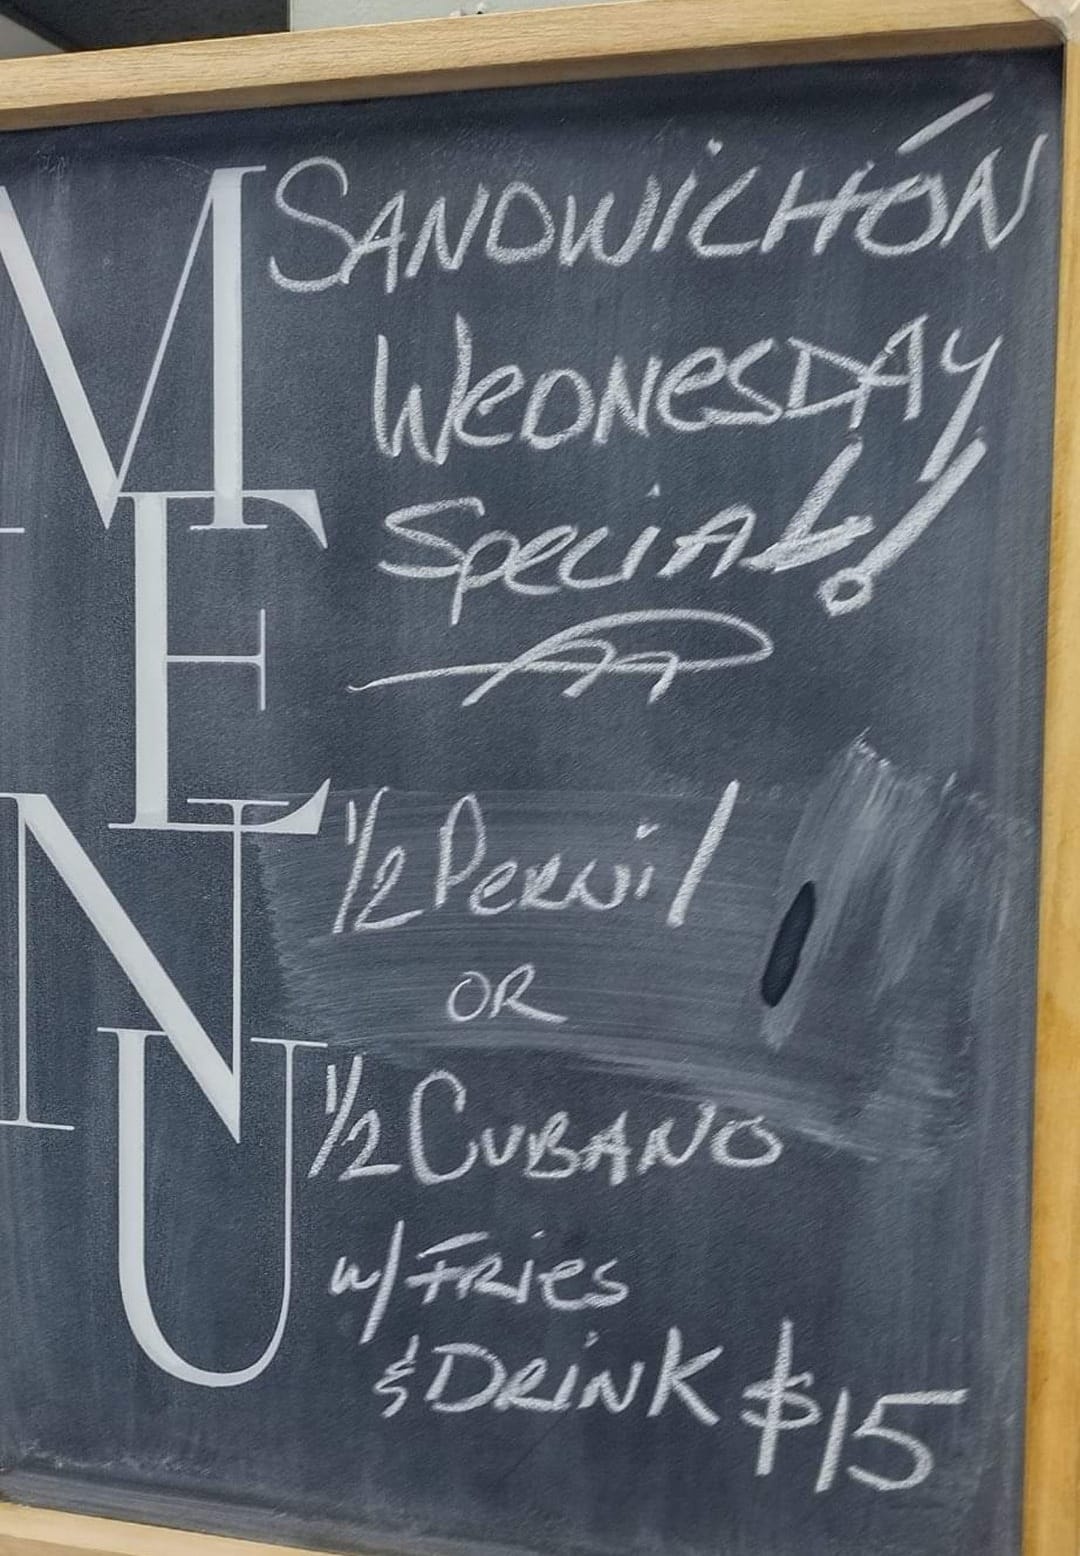 MENU
SANDWICHÓN
WEDNESDAY
SPECIAL!
1/2 PERNIL
OR
1/2 CUBANO
w/ FRIES
& DRINK $15